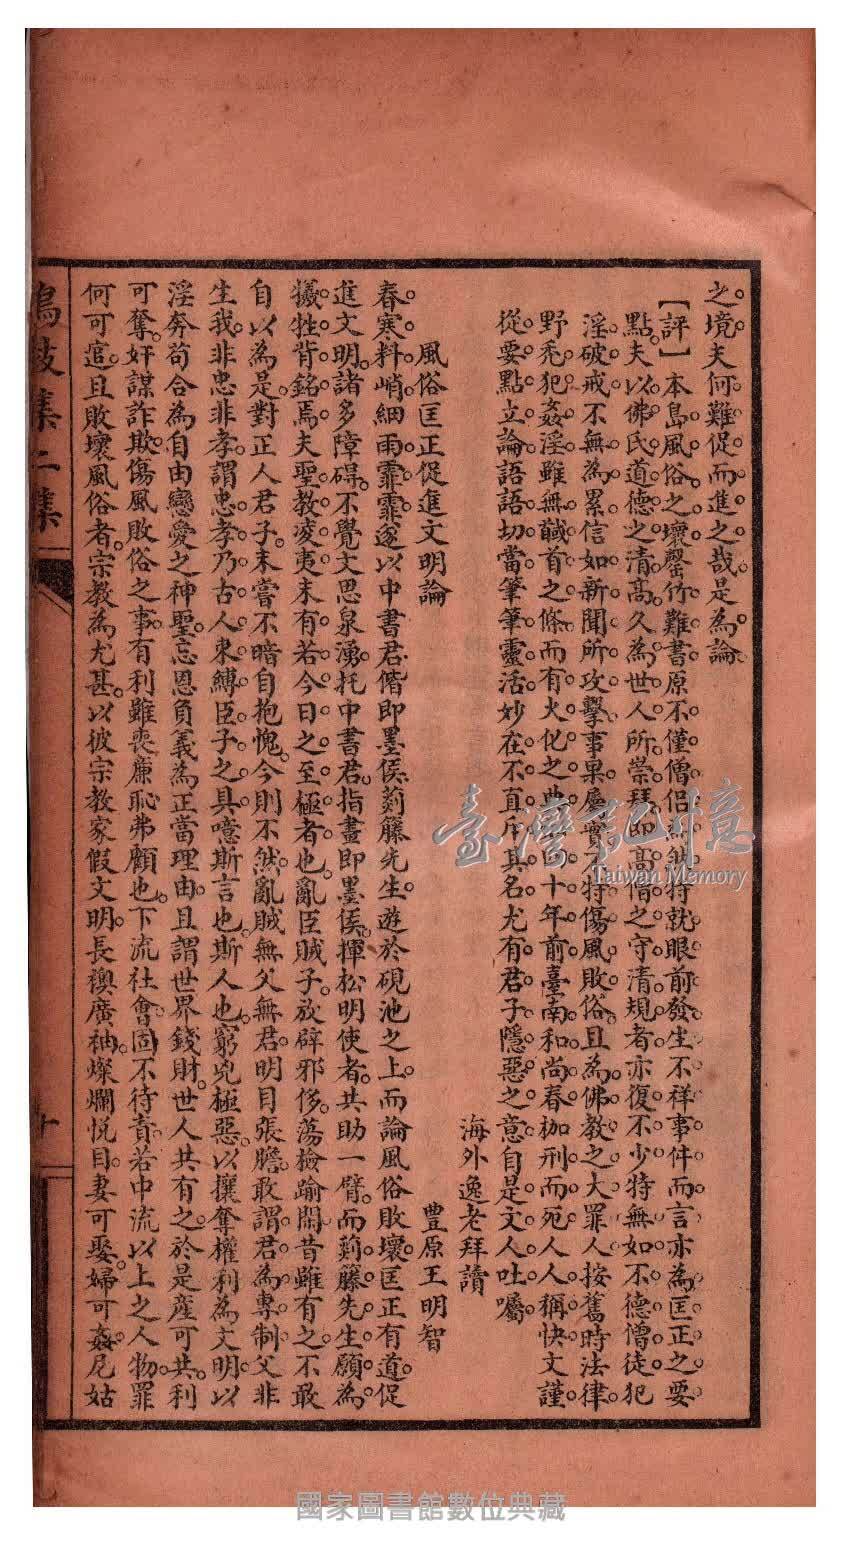 之境夫何難促而進之哉是為論
【評】本島風俗之壞罄竹難書原不僅僧侶為然特就眼前發生不祥事件而言亦為匡正之要
點夫以佛氏道德之清高久為世人所崇拜即高僧之守清規者亦復不少特無如不德僧徒犯
淫破戒不無為累信如新聞所攻擊事果屬實不特傷風敗俗且為佛教之大罪人按舊時法律
野禿犯姦淫雖無馘首之條而有火化之典四十年前臺南和尚春枷刑而死人人稱快文謹
從要點立論語語切當筆筆靈活妙在不直斥其名尤有君子隱惡之意自是文人吐囑
海外逸老拜讀
風俗匡正促進文明論
豊原王明智
春寒料峭細雨霏霏遂以中書君偕即墨侯莿籐先生遊於硯池之上而論風俗敗壞匡正有道促
進文明諸多障碍不覺文思泉湧托中書君指畫即墨侯揮松明使者共助一臂而莿籐先生願為
犧牲背銘焉夫聖教凌夷未有若今日之至極者也亂臣賊子放辟邪侈蕩檢踰閑昔雖有之不敢
自以為是對正人君子未嘗不暗自抱愧今則不然亂賊無父無君明目張膽敢謂君為專制父非
生我非忠非孝謂忠孝乃古人束縛臣子之具噫斯言也斯人也窮兇極惡以攘奪權利為文明以
淫奔苟合為自由戀愛之神聖忘恩負義為正當理由且謂世界錢財世人共有之於是產可共利
可奪奸謀詐欺傷風敗俗之事有利雖喪廉恥弗顧也下流社會固不待責若中流以上之人物罪
何可逭且敗壞風俗者宗教為尤甚以彼宗教家假文明長襖廣袖燦爛悅目妻可娶婦可姦尼姑
鳴鼓集二集
十
臺灣記憶
Taiwan Memory
國家圖書館數位典藏